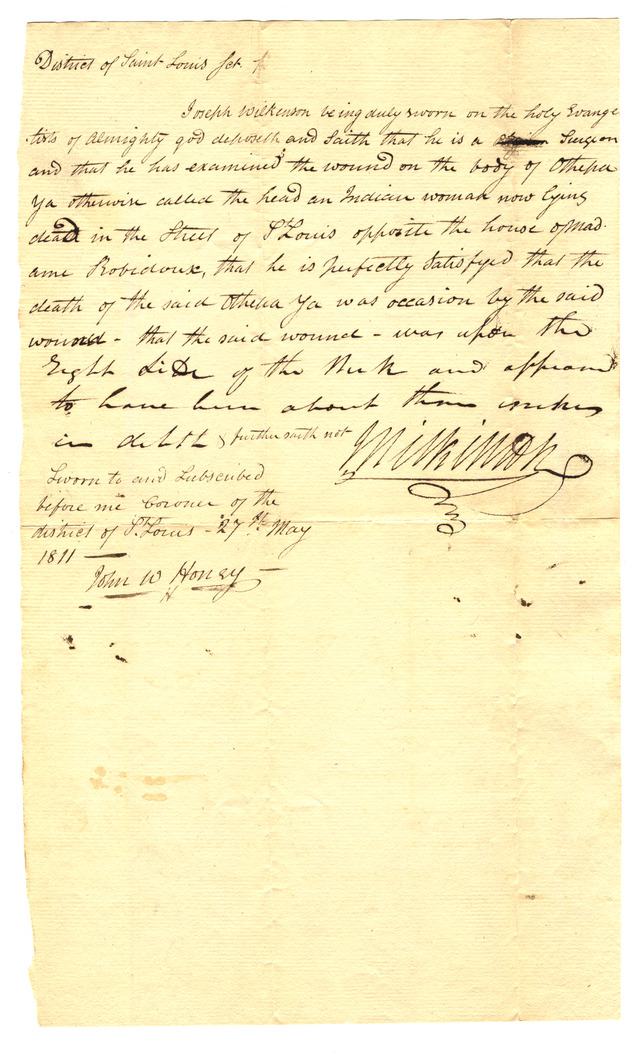 District of Saint Louis Sct.
Joseph Wilkinson being duly sworn on the holy Evange
lists of Almighty god deposeth and Saith that he is a Surgeon
and that he has examined the wound on the body of Othepa
Ya otherwise called the head an Indian woman now lying
dead in the Street of St Louis opposite the house of Mad
ame Robidoux, that he is perfectly Satisfyed that the
death of the said Othepa Ya was occasion by the said
wound - that the said wound - was upon the
Right Side of the Neck and appeared
to have been about three inches
in debth & further saith not
JWilkinson
Sworn to and Subscribed
before me Coroner of the
district of St Louis - 27th May
1811 —
John W Honey —